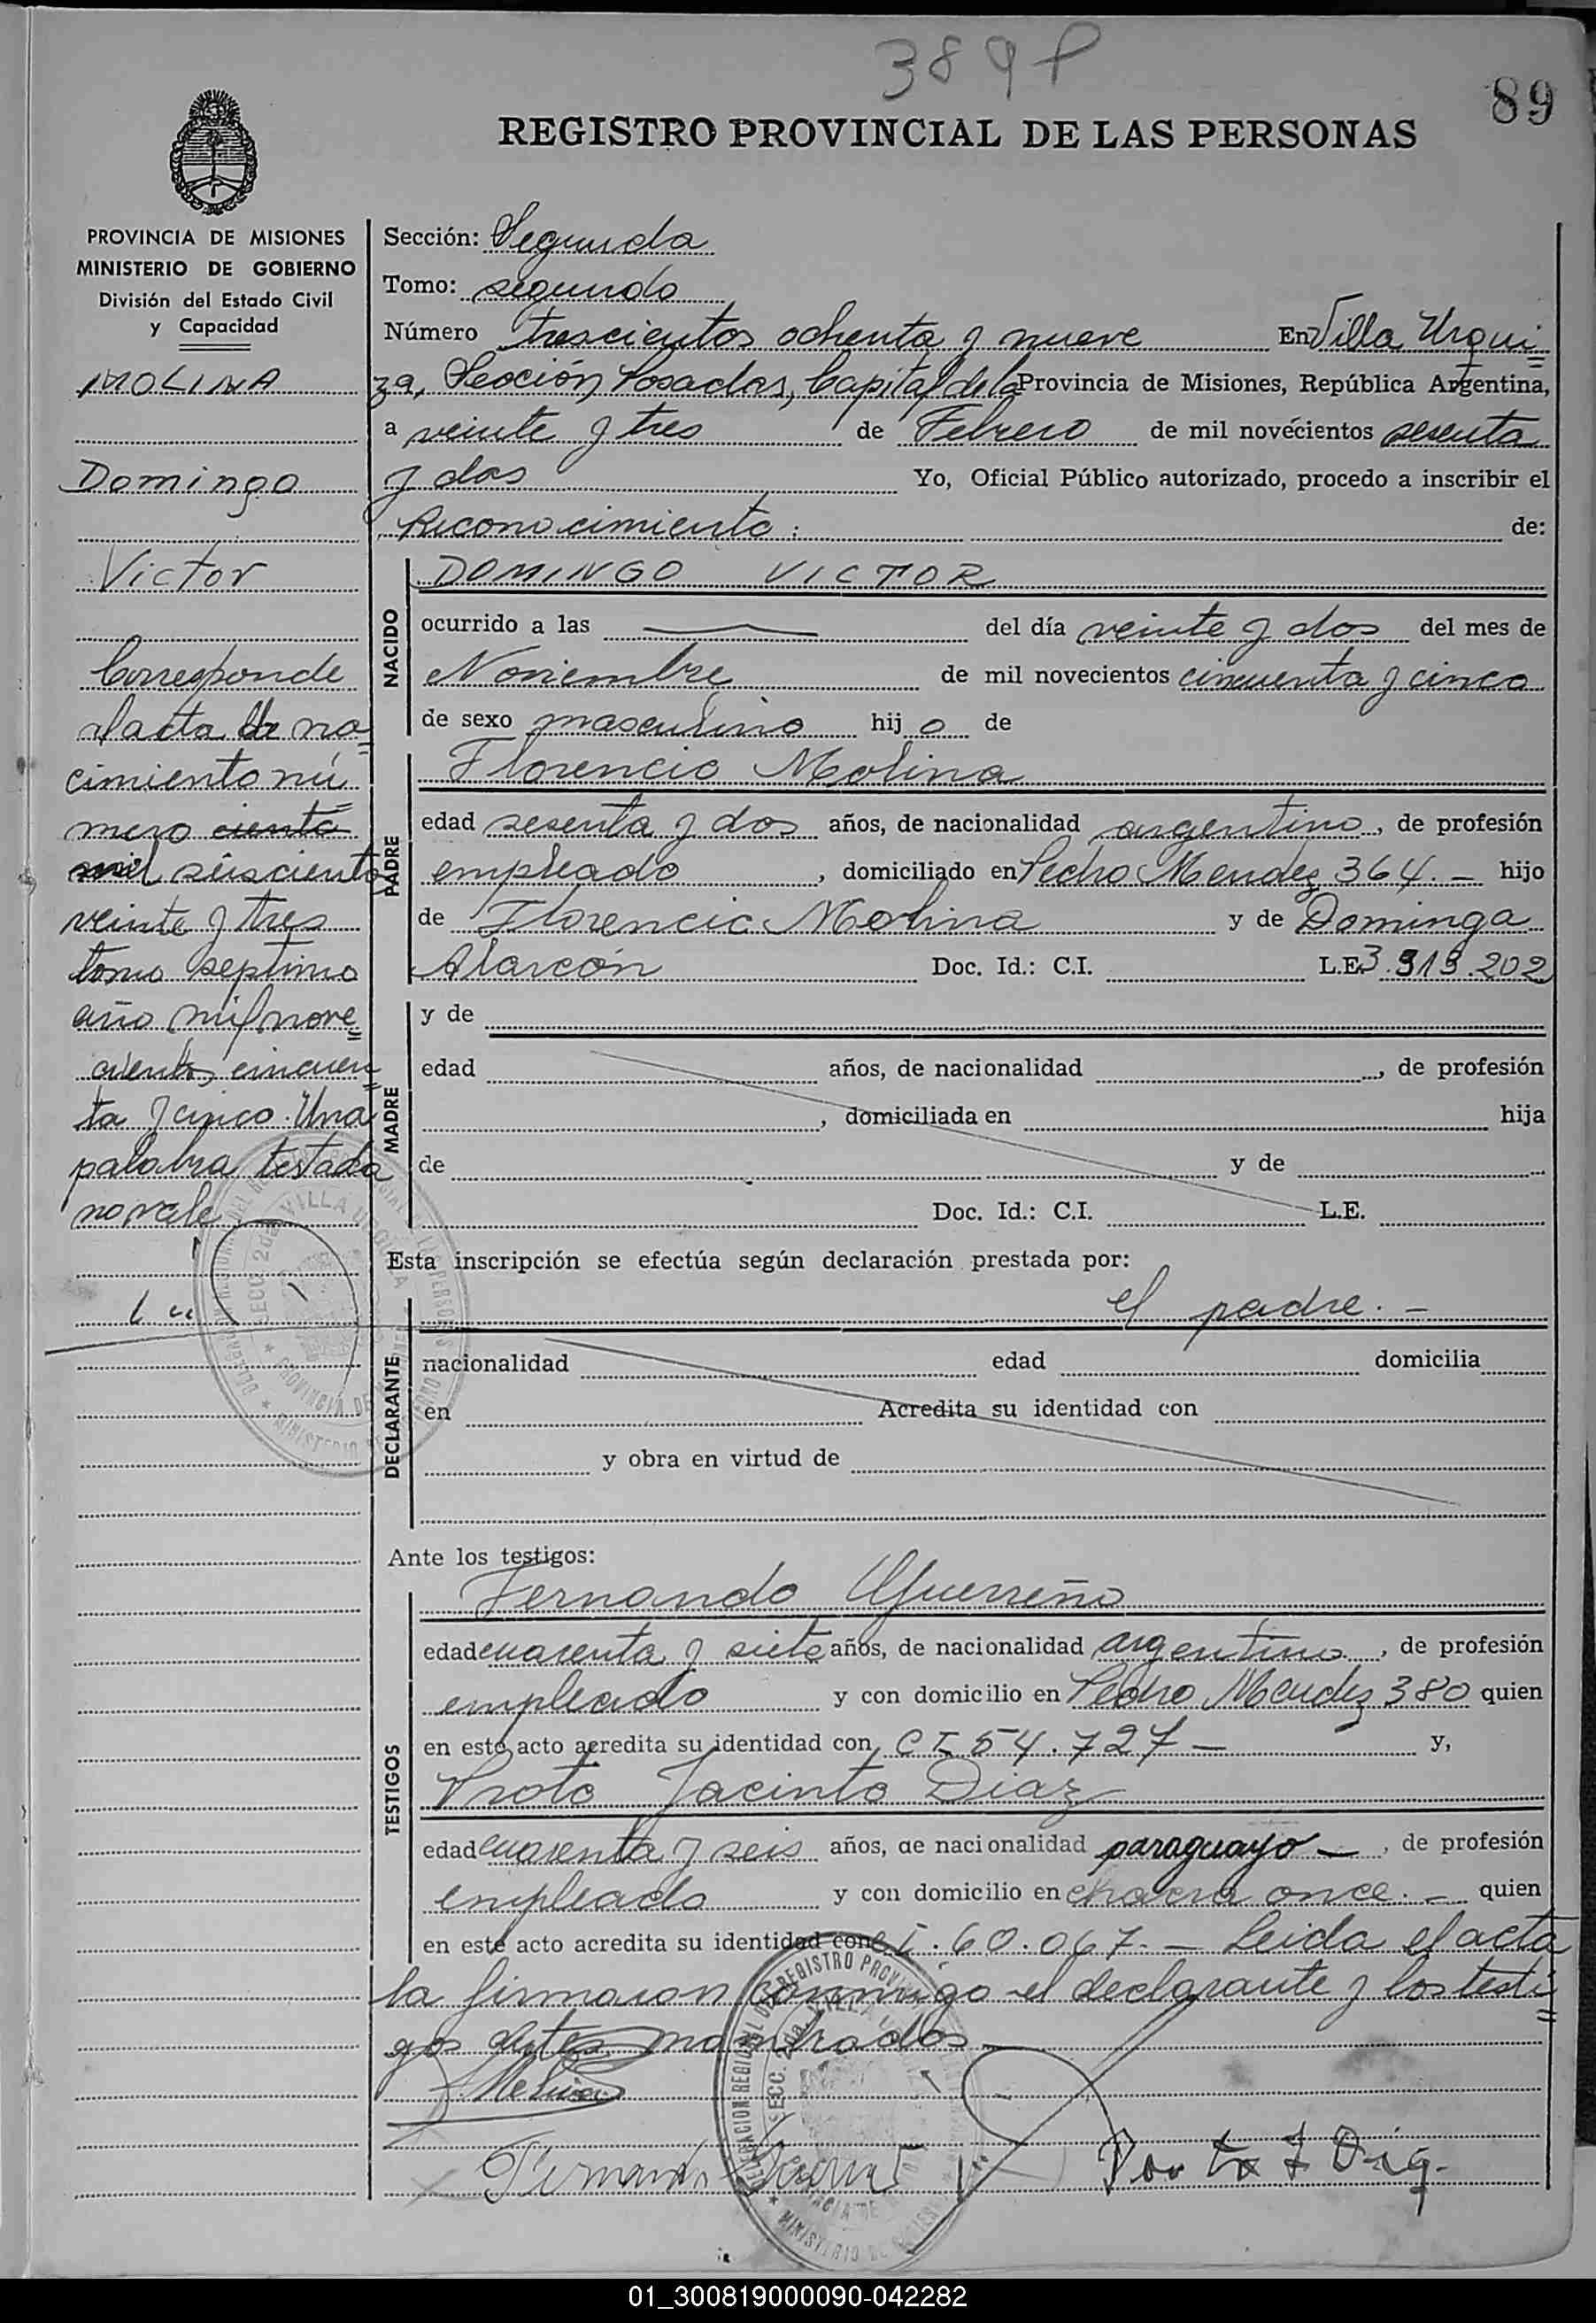 389 P
89
REGISTRO PROVINCIAL DE LAS PERSONAS
PROVINCIA DE MISIONES
MINISTERIO DE GOBIERNO
División del Estado Civil
y Capacidad
MOLINA
Domingo
Victor
Corresponde
al acta de na=
cimiento nú=
mero ciento
mil seiscientos
veinte y tres
tomo septimo
año mil nove=
cientos cincuen=
ta y cinco. Una
palabra testada
no vale
Sección: Segunda
Tomo: segundo
Número trescientos ochenta y nueve En Villa Urqui=
za, Sección Posadas, Capital de la Provincia de Misiones, República Argentina,
a veinte y tres de Febrero de mil novécientos sesenta
y dos Yo, Oficial Público autorizado, procedo a inscribir el
Reconocimiento: de:
NACIDO
DOMINGO VICTOR
ocurrido a las — del día veinte y dos del mes de
Noviembre de mil novecientos cincuenta y cinco
de sexo masculino hijo de
PADRE
Florencio Molina
edad sesenta y dos años, de nacionalidad argentino, de profesión
empleado, domiciliado en Pedro Mendez 364. — hijo
de Florencio Molina y de Dominga
Alarcón Doc. Id.: C.I. L.E. 3.919.202
MADRE
y de
edad años, de nacionalidad , de profesión
, domiciliada en hija
de y de
Doc. Id.: C.I. L.E.
Esta inscripción se efectúa según declaración prestada por:
el padre. —
DECLARANTE
nacionalidad edad domicilia
en Acredita su identidad con
y obra en virtud de
Ante los testigos:
TESTIGOS
Fernando Guerreño
edad cuarenta y siete años, de nacionalidad argentino, de profesión
empleado y con domicilio en Pedro Mendez 380 quien
en este acto acredita su identidad con CI 54.727 — y,
Proto Jacinto Diaz
edad cuarenta y seis años, de nacionalidad paraguayo —, de profesión
empleado y con domicilio en chacra once. — quien
en este acto acredita su identidad con C I. 60.067. — Leida el acta
la firmaron conmigo el declarante y los testi=
gos antes nombrados
Molina
01_300819000090-042282